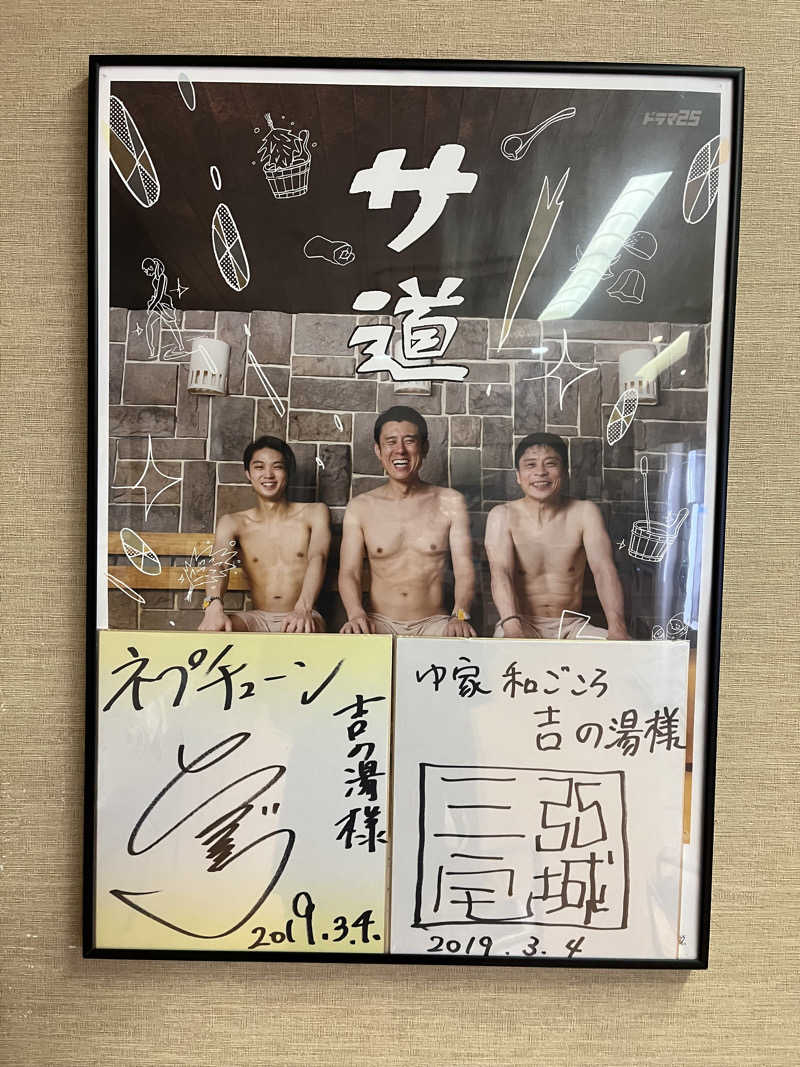 ドラマ25
サ
道
ネプチューン
吉の湯様
2019.3.4.
ゆ家 和ごころ
吉の湯様
三宅弘城
2019.3.4